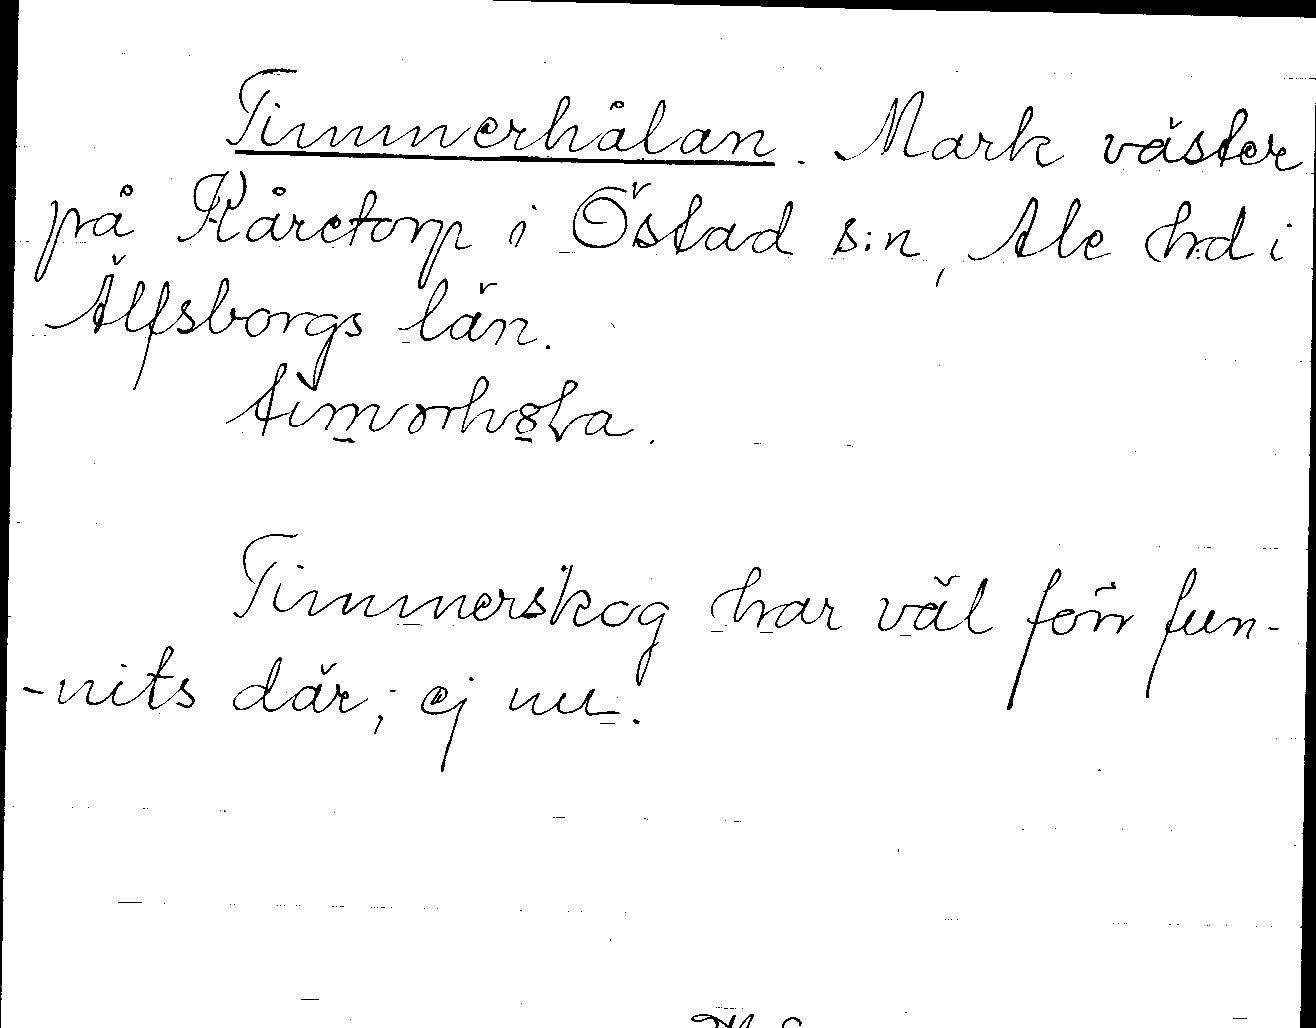 Timmerhålan. Mark väster
på Kåretorp i Östad s:n, Ale hd i
Älfsborgs län.

Timmerskog har väl förr fun-
-nits där; ej nu.